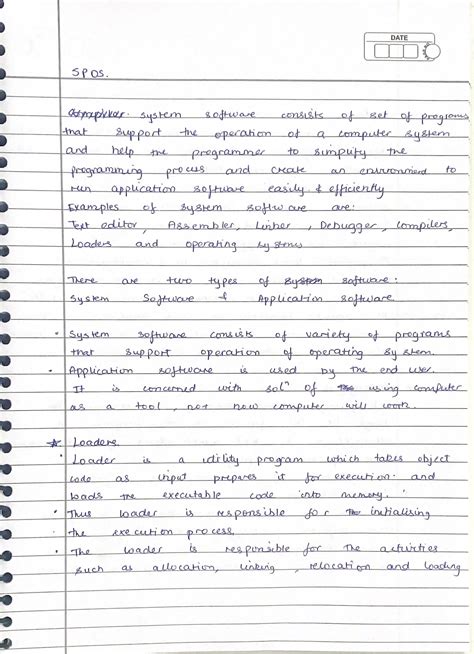 DATE
SPOS.
system software consists of set of programs
that support the operation of a computer system
and help the programmer to simplify the
programming process and create an environment to
run application software easily & efficiently
Examples of system software are:
Text editor, Assembler, Linker, Debugger, compilers,
Loaders and operating systems
There are two types of system software:
System Software & Application software.
• System software consists of variety of programs
that support operation of operating system.
• Application software is used by the end user.
It is concerned with solⁿ of using computer
as a tool, not how computer will work.
* Loaders.
• Loader is a utility program which takes object
code as input prepares it for execution. and
loads the executable code into memory.
• Thus loader is responsible for initialising
the execution process.
• The loader is responsible for the activities
such as allocation, linking, relocation and loading